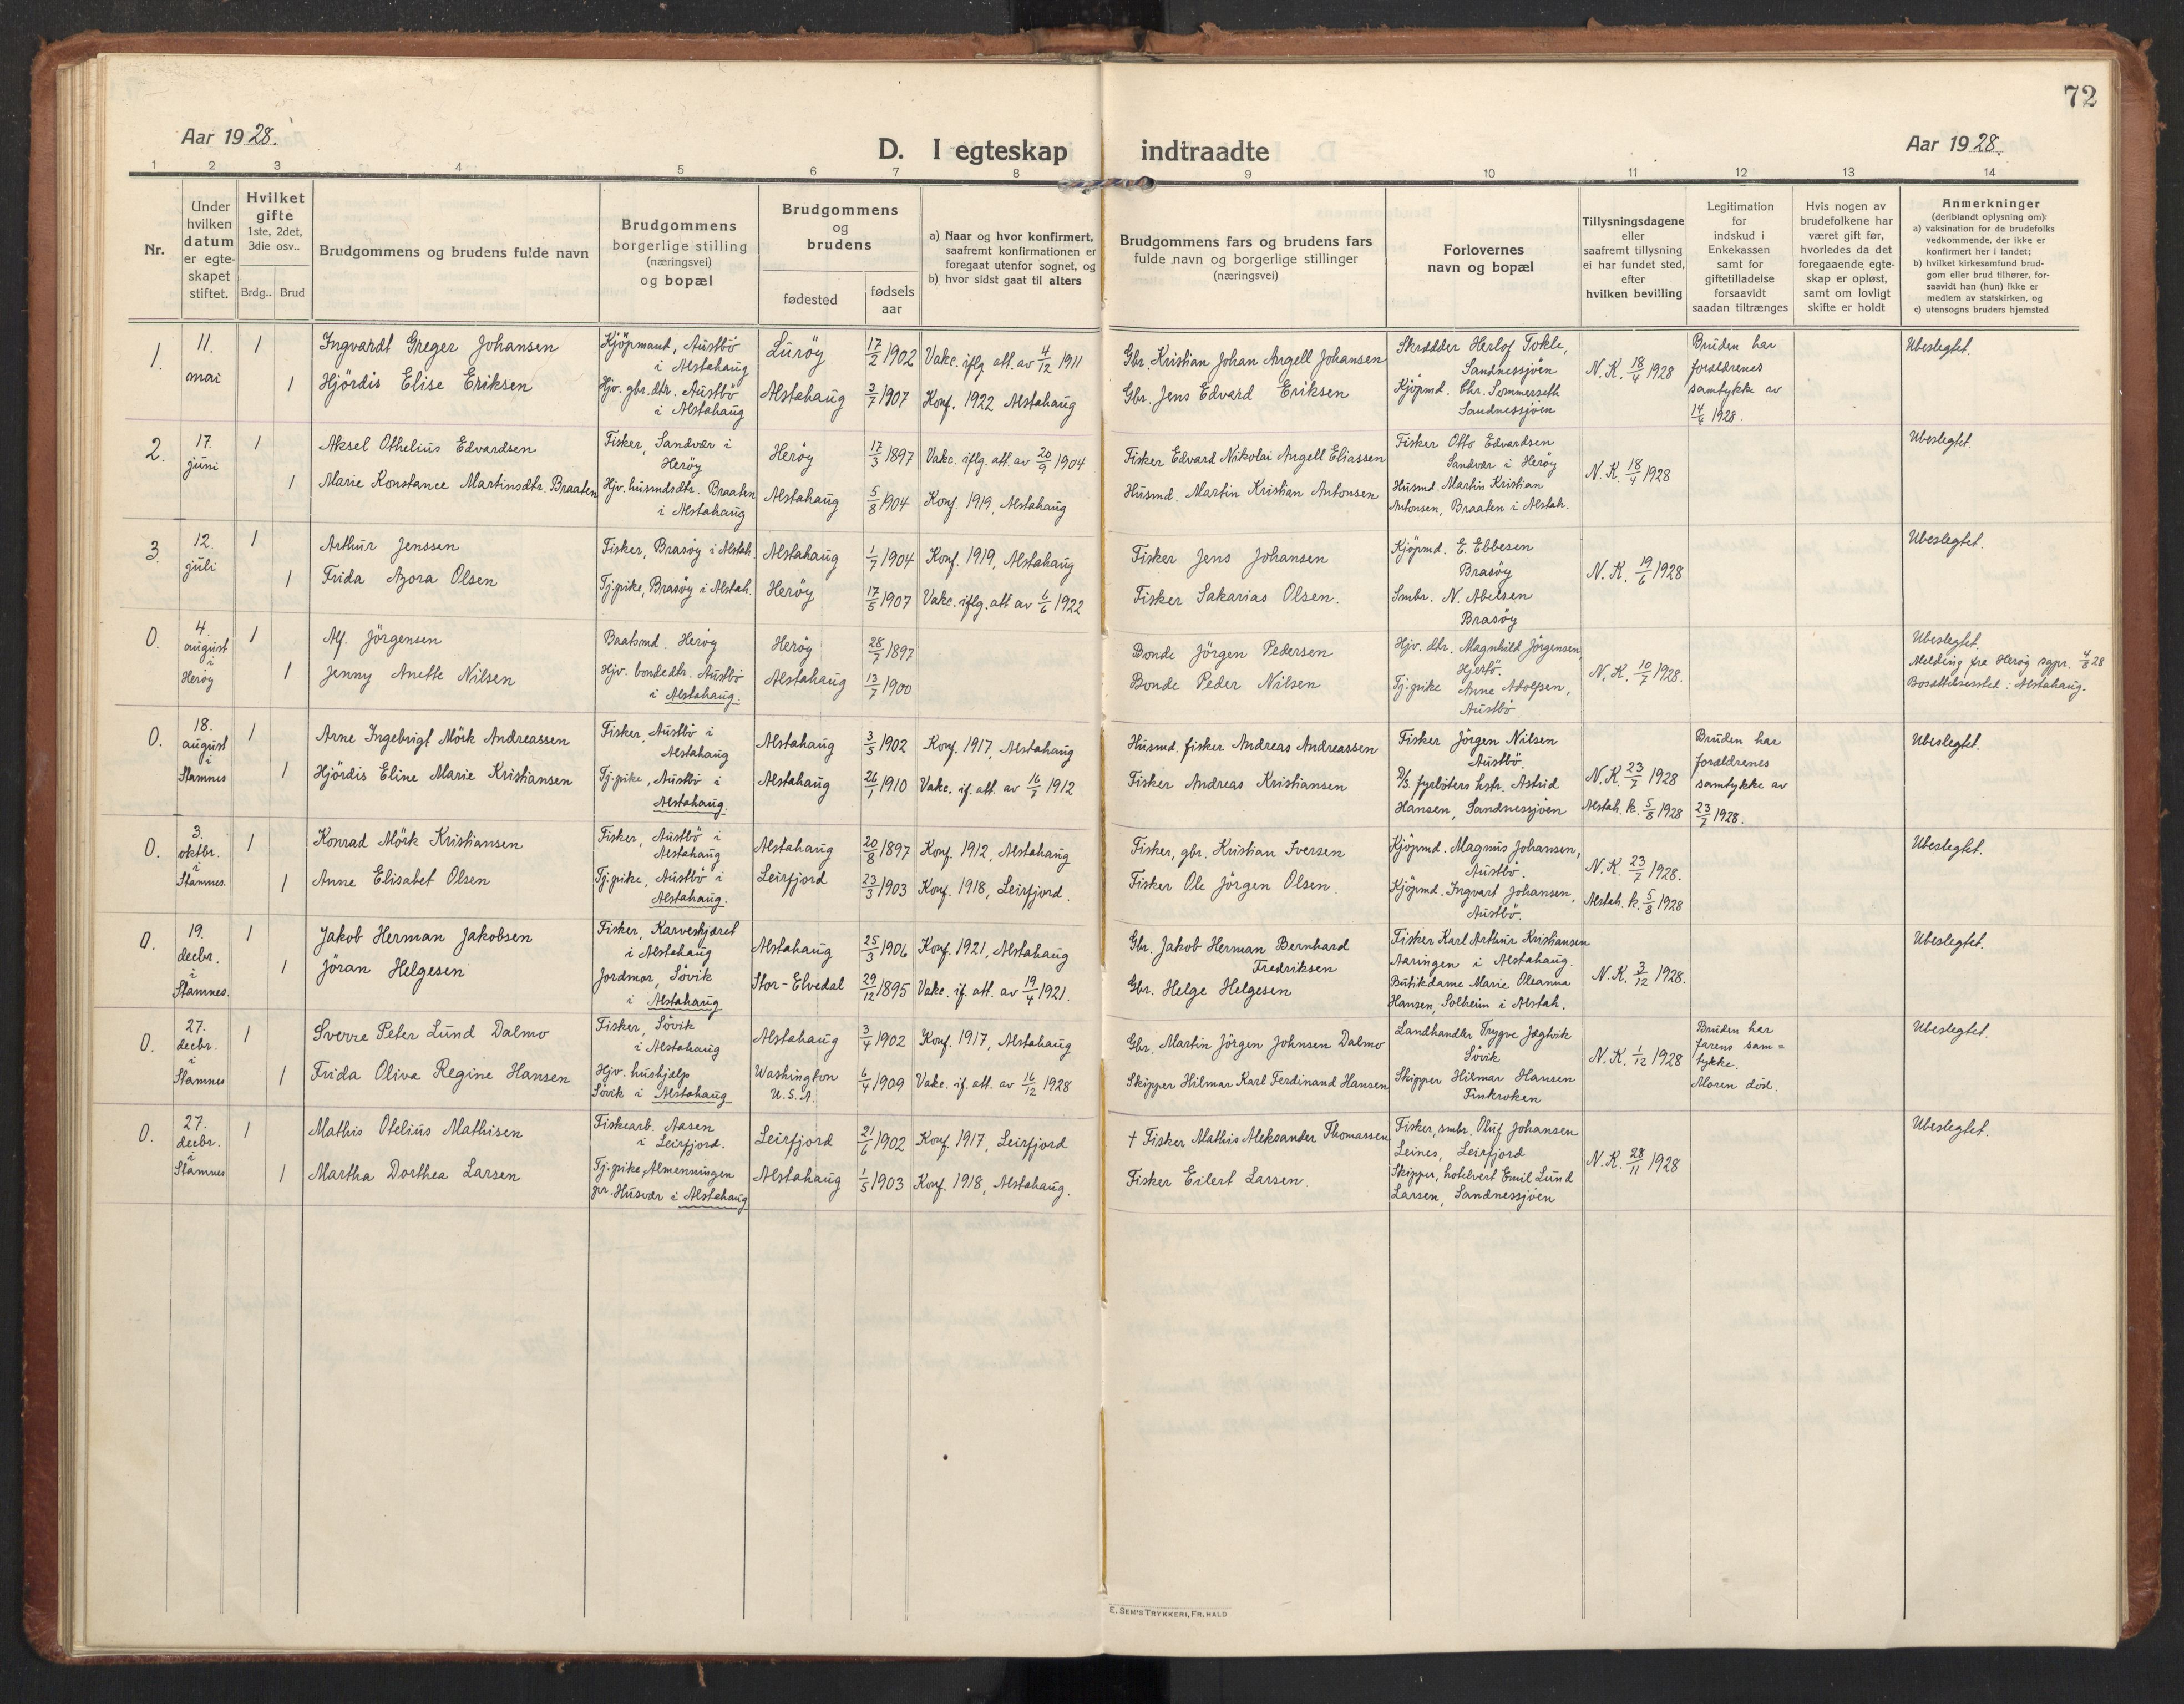 72
Aar 1928.
D. I egteskap indtraadte
Aar 1928.
1 2 3 4 5 6 7 8 9 10 11 12 13 14
Nr.
Under
hvilken
datum
er egte-
skapet
stiftet.
Hvilket
gifte
1ste, 2det,
3die osv..
Brdg.. Brud
Brudgommens og brudens fulde navn
Brudgommens
borgerlige stilling
(næringsvei)
og bopæl
Brudgommens
og
brudens
fødested
fødsels
aar
a) Naar og hvor konfirmert,
saafremt konfirmationen er
foregaat utenfor sognet, og
b) hvor sidst gaat til alters
Brudgommens fars og brudens fars
fulde navn og borgerlige stillinger
(næringsvei)
Forlovernes
navn og bopæl
Tillysningsdagene
eller
saafremt tillysning
ei har fundet sted,
efter
hvilken bevilling
Legitimation
for
indskud i
Enkekassen
samt for
giftetilladelse
forsaavidt
saadan tiltrænges
Hvis nogen av
brudefolkene har
været gift før,
hvorledes da det
foregaaende egte-
skap er opløst,
samt om lovligt
skifte er holdt
Anmerkninger
(deriblandt oplysning om):
a) vaksination for de brudefolks
vedkommende, der ikke er
konfirmert her i landet;
b) hvilket kirkesamfund brud-
gom eller brud tilhører, for-
saavidt han (hun) ikke er
medlem av statskirken, og
c) utensogns bruders hjemsted
1.
11.
mai
1
Ingvardt Greger Johansen
Kjöpmand, Austbö
i Alstahaug
Luröy
17/2 1902
Vakc. iflg att. av 4/12 1911
Gbr. Kristian Johan Angell Johansen
Skrædder Herlof Tokle,
Sandnessjöen
N.K. 18/4 1928
Bruden har
forældrenes
samtykke av
14/4 1928.
Ubeslegtet.
1
Hjördis Elise Eriksen
Hjv. gbr.dtr. Austbö
i Alstahaug
Alstahaug
3/7 1907
Konf. 1922 Alstahaug
Gbr. Jens Edvard Eriksen
Kjöpmd. Chr. Sommerseth
Sandnessjöen
2.
17.
juni
1
Aksel Othelius Edvardsen
Fisker, Sandvær i
Heröy
Heröy
17/3 1897
Vakc. iflg. att. av 20/9 1904
Fisker Edvard Nikolai Angell Eliassen
Fisker Otto Edvardsen
Sandvær i Heröy
N.K. 18/4 1928
Ubeslegtet.
1
Marie Konstance Martinsdtr. Braaten
Hjv. husmdsdtr. Braaten
i Alstahaug
Alstahaug
5/8 1904
Konf. 1919, Alstahaug
Husmd. Martin Kristian Antonsen
Husmd. Martin Kristian
Antonsen, Braaten i Alstah.
3.
12.
juli
1
Arthur Jenssen
Fisker, Brasöy i Alstah.
Alstahaug
1/7 1904
Konf. 1919, Alstahaug
Fisker Jens Johansen
Kjöpmd. E. Ebbesen
Brasöy
N.K. 19/6 1928
Ubeslegtet.
1
Frida Azora Olsen
Tj.pike, Brasöy i Alstah.
Heröy
17/5 1907
Vakc. iflg. att av 1/6 1922
Fisker Sakarias Olsen.
Smbr. N. Abelsen
Brasöy
0.
4.
august
i
Heröy
1
Alf. Jörgensen
Baatsmd. Heröy
Heröy
28/7 1897
Bonde Jörgen Pedersen
Hjv. dtr. Magnhild Jörgensen,
Hjertö.
N.K. 10/7 1928.
Ubeslegtet.
Melding fra Heröy sgpr. 4/8 28
Bosættelsessted: Alstahaug.
1
Jenny Anette Nilsen
Hjv. bondedtr. Austbö
i Alstahaug.
Alstahaug
13/7 1900
Bonde Peder Nilsen
Tj.pike Anne Adolfsen,
Austbö
0.
18.
august
i
Stamnes
1
Arne Ingebrigt Mörk Andreassen
Fisker, Austbö i
Alstahaug
Alstahaug
3/5 1902
Konf. 1917, Alstahaug
Husmd. fisker Andreas Andreassen
Fisker Jörgen Nilsen
Austbö.
N.K. 23/7 1928
Alstah. k. 5/8 1928
Bruden har
forældrenes
samtykke av
23/7 1928.
Ubeslegtet.
1
Hjördis Eline Marie Kristiansen
Tj.pike, Austbö i
Alstahaug.
Alstahaug
26/1 1910
Vakc. if. att. av 16/7 1912
Fisker Andreas Kristiansen
D/S. fyrböters hstr. Astrid
Hansen, Sandnessjöen
0.
3.
oktbr.
i
Stamnes.
1
Konrad Mörk Kristiansen
Fisker, Austbö i
Alstahaug
Alstahaug
20/8 1897
Konf. 1912, Alstahaug
Fisker, gbr. Kristian Iversen
Kjöpmd. Magnus Johansen,
Austbö.
N.K. 23/7 1928.
Alstah. k. 5/8 1928
Ubeslegtet.
1
Anne Elisabet Olsen
Tj.pike, Austbö i
Alstahaug.
Leirfjord
23/3 1903
Konf. 1918, Leirfjord.
Fisker Ole Jörgen Olsen.
Kjöpmd. Ingvart Johansen,
Austbö.
0.
19.
decbr.
i
Stamnes.
1
Jakob Herman Jakobsen
Fisker, Karveskjæret
i Alstahaug
Alstahaug
25/3 1906
Konf. 1921, Alstahaug
Gbr. Jakob Herman Bernhard
Fredriksen
Fisker Karl Arthur Kristiansen
Aaringen i Alstahaug.
N.K. 3/12 1928.
Ubeslegtet.
1
Jöran Helgesen
Jordmor, Sövik
i Alstahaug
Stor-Elvedal
29/12 1895
Vakc. if. att. av 19/4 1921.
Gbr. Helge Helgesen
Butikdame Marie Oleanna
Hansen, Solheim i Alstah.
0.
27.
decbr.
i
Stamnes
1
Sverre Peter Lund Dalmo
Fisker, Sövik
i Alstahaug
Alstahaug
3/4 1902
Konf. 1917, Alstahaug
Gbr. Martin Jörgen Johnsen Dalmo
Landhandler Trygve Jægtvik
Sövik
N.K. 1/12 1928
Bruden har
farens sam=
tykke.
Moren död.
Ubeslegtet.
1
Frida Oliva Regine Hansen
Hjv. hushjælp
Sövik i Alstahaug
Washington
U.S.A.
6/4 1909
Vakc. if. att. av 16/12 1928
Skipper Hilmar Karl Ferdinand Hansen
Skipper Hilmar Hansen
Finkroken
0.
27.
decbr.
i
Stamnes
1
Mathis Otelius Mathisen
Fiskearb. Aasen
i Leirfjord.
Leirfjord
21/6 1902
Konf. 1917, Leirfjord
† Fisker Mathis Aleksander Thomassen
Fisker, smbr. Oluf Johansen
Leines, Leirfjord
N.K. 28/11 1928
Ubeslegtet.
1
Martha Dorthea Larsen
Tj.pike, Almenningen
pr. Husvær i Alstahaug
Alstahaug
1/5 1903
Konf. 1918, Alstahaug.
Fisker Eilert Larsen.
Skipper, hotelvert Emil Lund
Larsen, Sandnessjöen
E. SEM'S TRYKKERI, FR. HALD